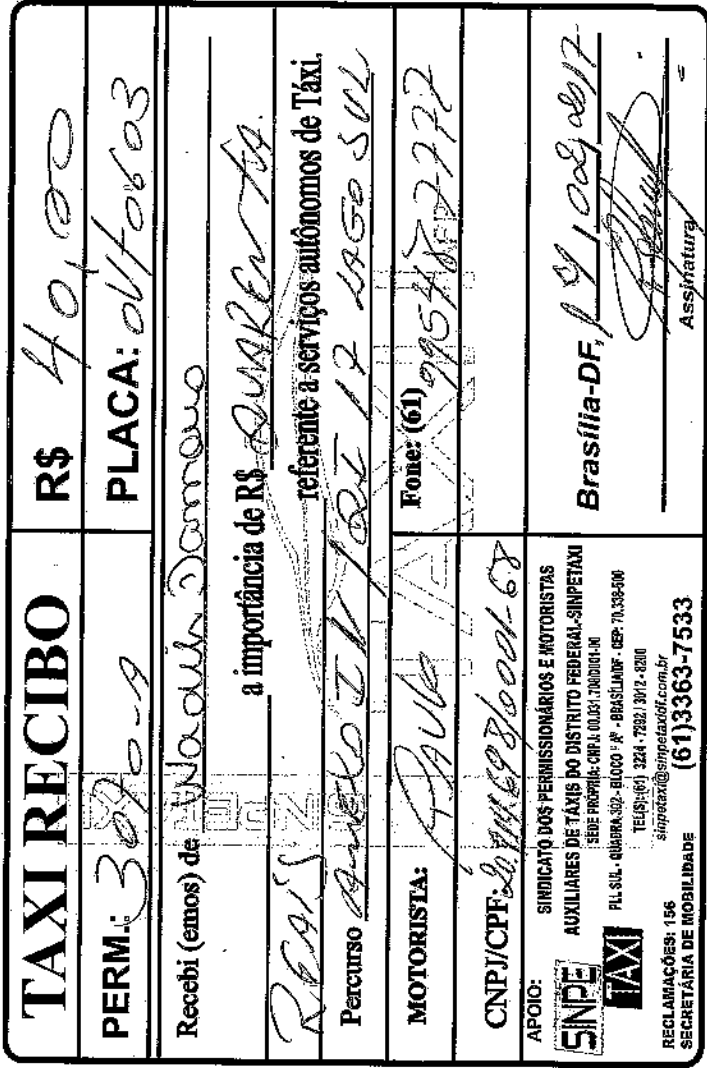 TAXI RECIBO
R$ 40,00
PERM.: 3070-A
PLACA: OVT0603
Recebi (emos) de
a importância de R$ QUARENTA
REAIS referente a serviços autônomos de Táxi.
Percurso ANEXO IV / QI 17 LAGO SUL
MOTORISTA: PAULO
Fone: (61)
CNPJ/CPF:
APOIO:
SINPETAXI
SINDICATO DOS PERMISSIONÁRIOS E MOTORISTAS
AUXILIARES DE TÁXIS DO DISTRITO FEDERAL-SINPETAXI
SEDE PRÓPRIA: CNPJ: 00.031.708/0001-00
PLL SUL - QUADRA 302 - BLOCO "A" - BRASÍLIA/DF - CEP: 70.338-600
TEL(S): (61) 3224-7292 / 3012-8200
sinpetaxi@sinpetaxidf.com.br
RECLAMAÇÕES: 156
SECRETÁRIA DE MOBILIDADE
(61)3363-7533
Brasília-DF,
Assinatura